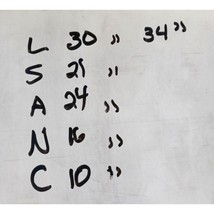 L 30 " 34 "
S 29 "
A 24 "
N 16 "
C 10 "